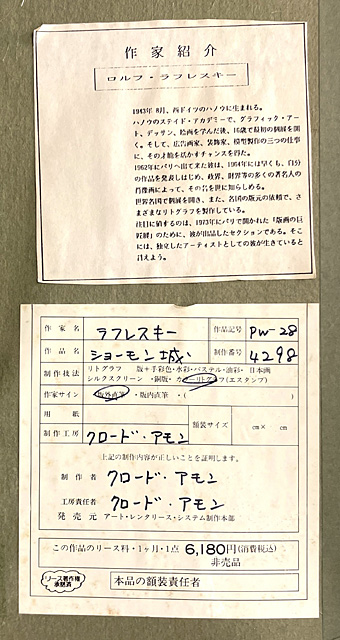 作家紹介
ロルフ・ラフレスキー
1943年 8月、西ドイツのハノウに生まれる。
ハノウのステイド・アカデミーで、グラフィック・アー
ト、デッサン、絵画を学んだ後、16歳で最初の個展を開
く。そして、広告画家、装飾家、模型製作の三つの仕事
に、その才能を活かすチャンスを得た。
1962年にパリへ出て来た彼は、1954年には早くも、自分
の作品を発表しはじめ、政界、財界等の多くの著名人の
肖像画によって、その名を世に知らしめる。
世界各国で個展を開き、また、各国の版元の依頼で、さ
まざまなリトグラフを製作している。
注目に値するのは、1973年にパリで開かれた「版画の巨
匠展」のために、彼が出品したセクションである。そこ
には、独立したアーティストとしての彼が生きていると
言えよう。
作家名 ラフレスキー 作品記号 PW-28
作品名 ショーモン城 制作番号 4298
制作技法 リトグラフ 版+手彩色・水彩・パステル・油彩・日本画
シルクスクリーン ・銅版・カラーリトグラフ(エスタンプ)
作家サイン 版外直筆・版内直筆・( )
用紙 額装サイズ cm× cm
制作工房 クロード・アモン
上記の制作内容が正しいことを証明します。
制作者 クロード・アモン
工房責任者 クロード・アモン
発売元 アート・レンタリース・システム制作本部
この作品のリース料・1ヶ月・1点 6,180円(消費税込)
非売品
リース著作権
承認済
本品の額装責任者